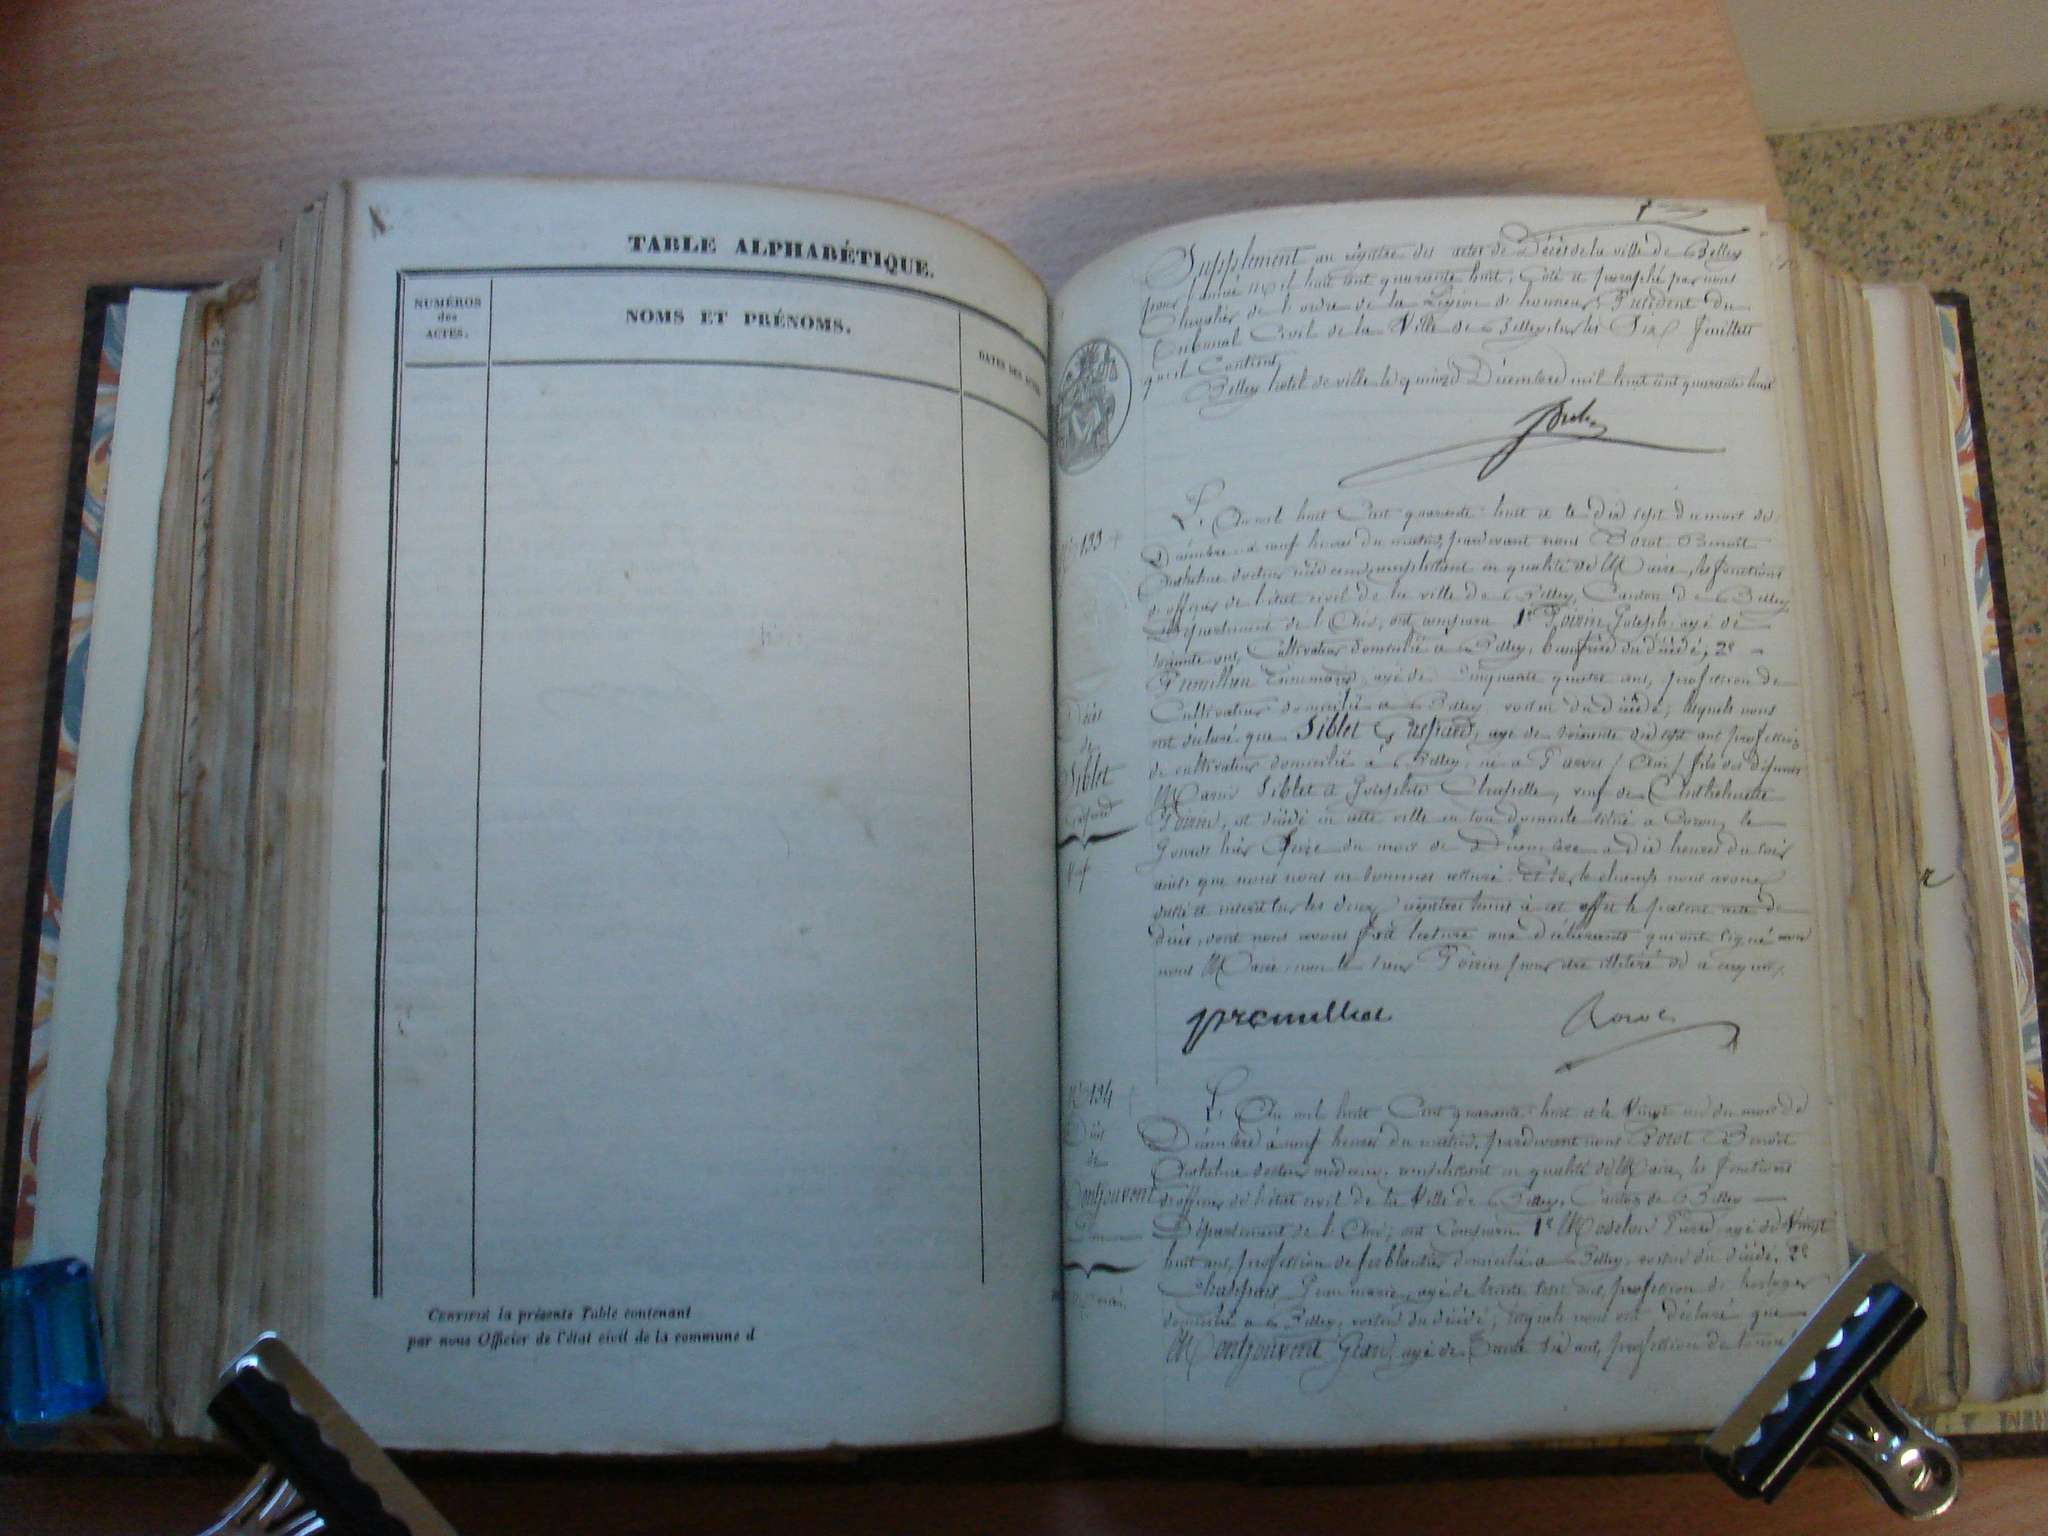 TABLE ALPHABÉTIQUE.
NUMÉROS
des
ACTES.
NOMS ET PRÉNOMS.
DATES DES ACTES.
CERTIFIÉ la présente Table contenant
par nous Officier de l'état civil de la commune d
Supplément au registre des actes de Décès de la ville de Belley
pour l'année mil huit cent quarante huit, Coté et paraphé par nous
Chevalier de l'ordre de la Légion d'honneur, Président du
Tribunal Civil de la Ville de Belley sur les Six feuillets
qu'il Contient
Belley hotel de ville le quinze Décembre mil huit cent quarante huit
133
Décès
de
Siblet
Gaspard
Veuf
L'An mil huit Cent quarante huit et le Dix sept du mois de
Décembre à neuf heures du matin, pardevant nous Benoit
docteur médecin, remplissant en qualité de Maire, les fonctions
d'officier de l'état civil de la ville de Belley, Canton de Belley
Département de l'Ain, ont comparu 1º Poirin Joseph, agé de
soixante ans, Cultivateur domicilié à Belley, beaufrère du décédé, 2º
agé de Cinquante quatre ans, profession de
Cultivateur domicilié à Belley voisin du décédé; lesquels nous
ont déclaré que Siblet Gaspard, agé de soixante dix sept ans profession
de cultivateur domicilié à Belley, né à Parves (Ain) fils des défunts
Siblet et Josephte Chapelle, veuf de
Poirin, est décédé en cette ville en son domicile situé à le
jour de hier Seize du mois de Décembre à dix heures du soir
ainsi que nous nous en sommes assuré. Et sur le champ nous avons
dressé et inscrit sur les deux registres tenus à cet effet le présent acte de
décès, dont nous avons fait lecture aux déclarants qui ont signé avec
nous Maire, non le sieur Poirin pour être illitéré de ce requis.
premillieu
134
Décès
de
Montjouvent
Jean
L'An mil huit Cent quarante huit et le Vingt un du mois de
Décembre à neuf heures du matin, pardevant nous Benoit
docteur médecin, remplissant en qualité de Maire, les fonctions
d'officier de l'état civil de la Ville de Belley, Canton de Belley
Département de l'Ain, ont Comparu 1º Modelon Pierre, agé de Vingt
huit ans, profession de ferblantier domicilié à Belley, voisin du décédé, 2º
Jean marie, agé de trente trois ans, profession de horloger
domicilié à Belley, voisin du décédé; lesquels nous ont déclaré que
Montjouvent Jean, agé de trente six ans, profession de